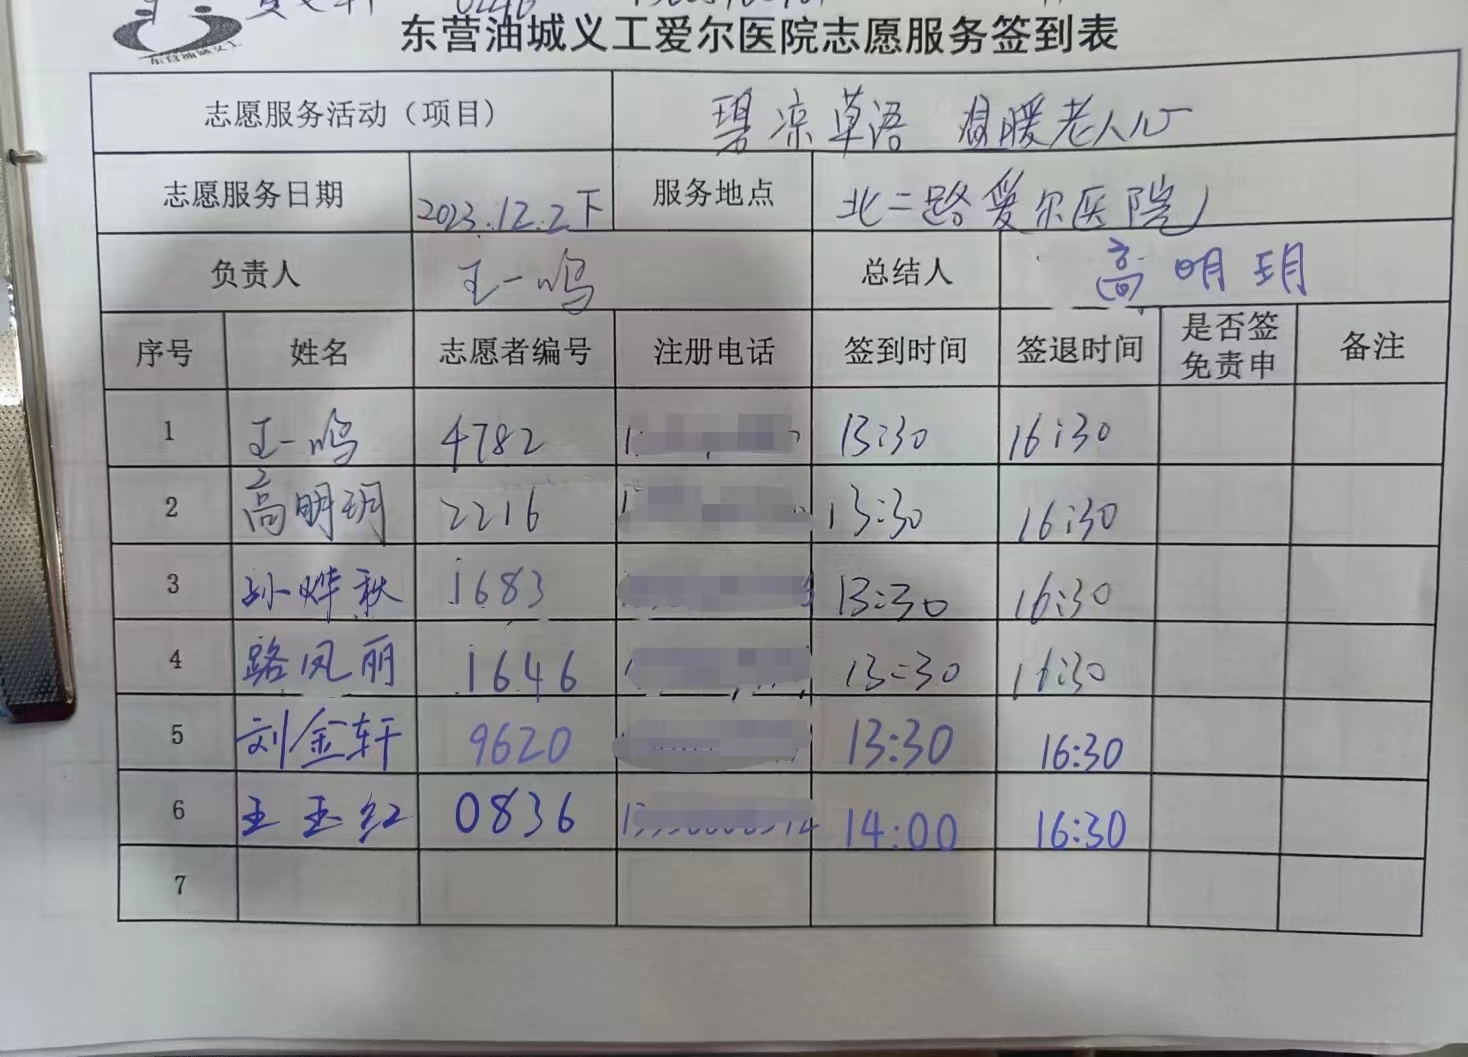 东营油城义工
东营油城义工爱尔医院志愿服务签到表
志愿服务活动（项目） 碧凉草语 温暖老人心
志愿服务日期 2023.12.2下 服务地点 北二路爱尔医院
负责人 王一鸣 总结人 高明玥
序号 姓名 志愿者编号 注册电话 签到时间 签退时间 是否签 备注
免责申
1 王一鸣 4782 13:30 16:30
2 高明玥 2216 13:30 16:30
3 孙烨秋 1683 13:30 16:30
4 路凤丽 1646 13:30 16:30
5 刘金轩 9620 13:30 16:30
6 王玉红 0836 14:00 16:30
7